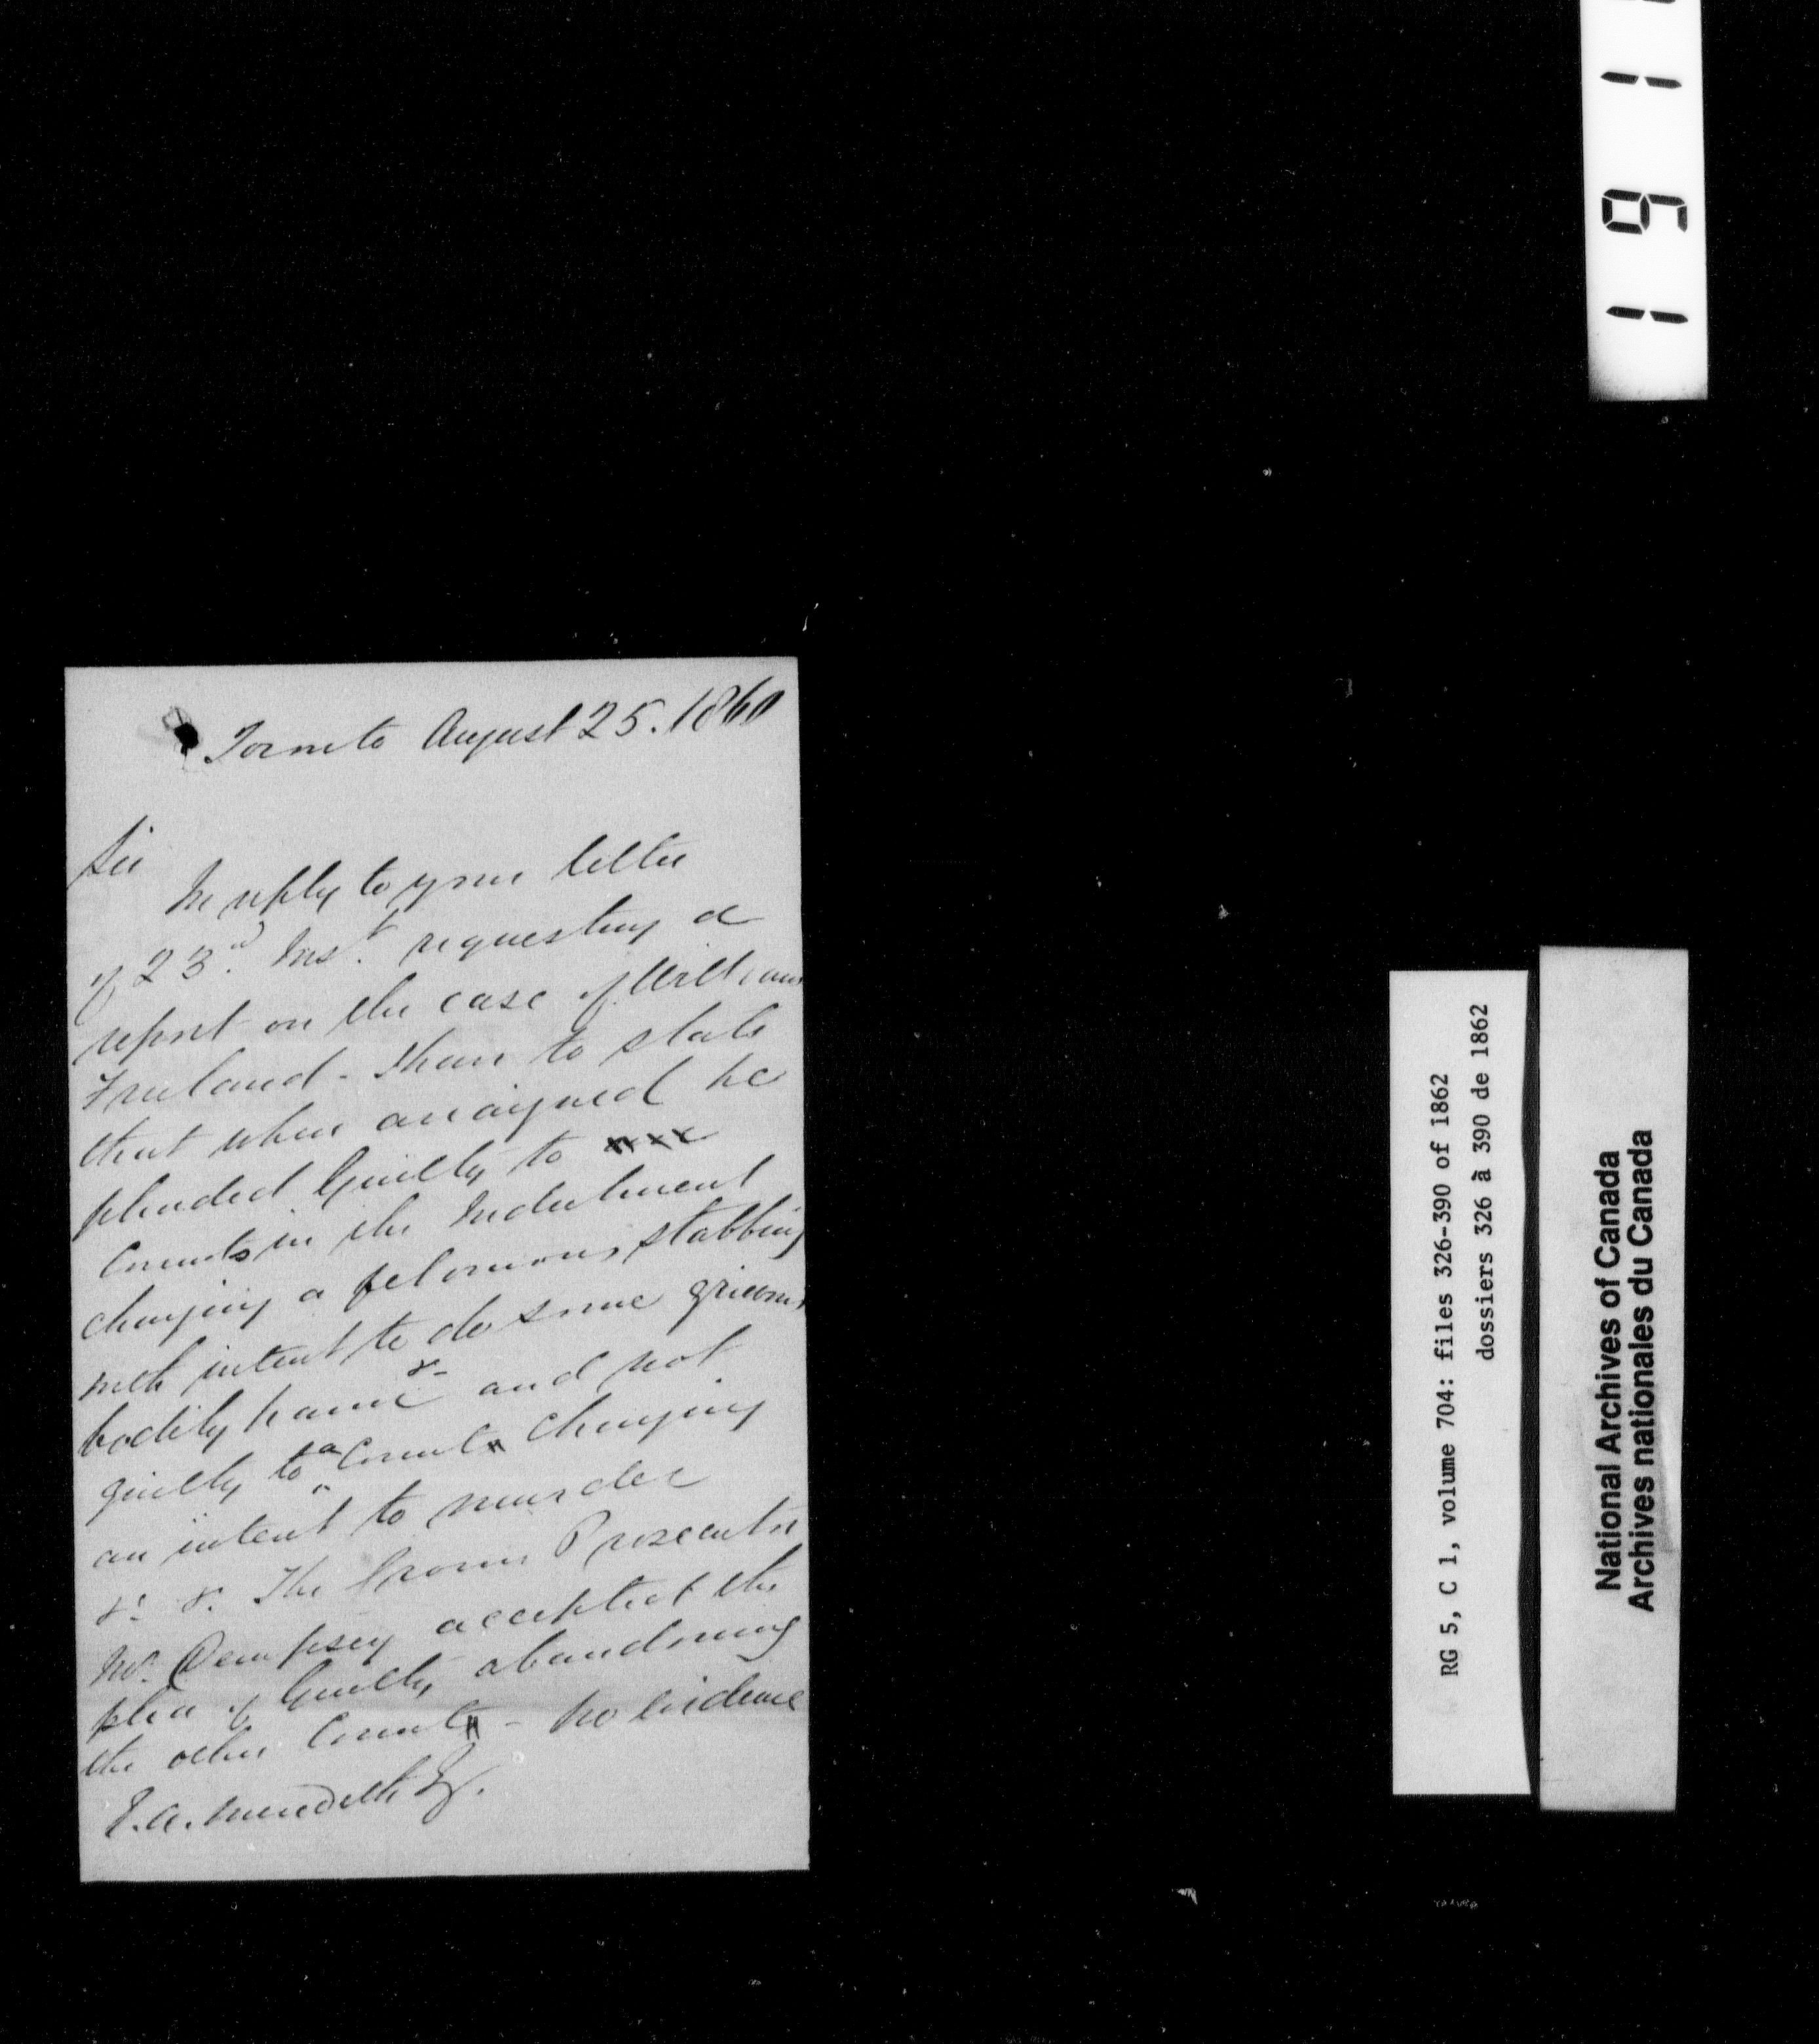 Toronto August 25. 1860
Sir
In reply to your letter
of 23rd Inst. requesting a
report on the case of William
Freeland - I have to state
that when arraigned he
pleaded Guilty to
Counts in the Indictment
charging a felonious stabbing
with intent to do some grievous
bodily harm &c and not
guilty to a Count charging
an intent to murder
&c. &c. The Crown Prosecutor
Mr. Dempsey accepted the
plea of Guilty abandoning
the other Count - No Evidence
E. A. Meredith Esq.
RG 5, C 1, volume 704: files 326-390 of 1862
dossiers 326 à 390 de 1862
National Archives of Canada
Archives nationales du Canada